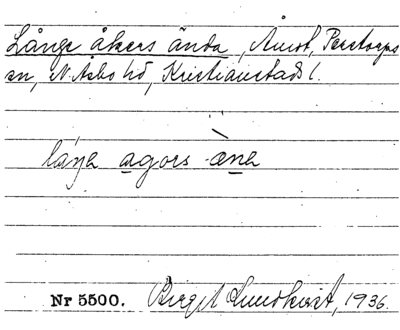 Långe åkers ända, Åmot, Perstorps
sn, N. Åsbo hd, Kristianstads l.
låŋa agors æna
Nr 5500. Birgit Lundkvist, 1936.